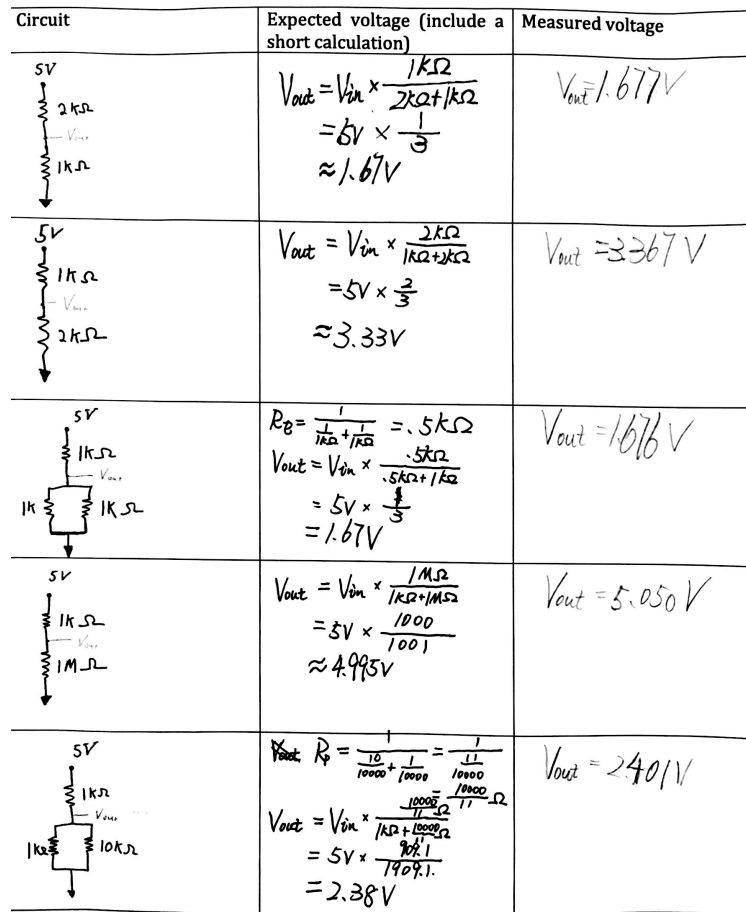 Circuit
Expected voltage (include a
short calculation)
Measured voltage
5V
2kΩ
Vout
1kΩ
Vout = Vin × 1kΩ / 2kΩ+1kΩ
= 5V × 1/3
≈ 1.67V
Vout = 1.677V
5V
1kΩ
Vout
2kΩ
Vout = Vin × 2kΩ / 1kΩ+2kΩ
= 5V × 2/3
≈ 3.33V
Vout = 3.367V
5V
1kΩ
Vout
1k
1kΩ
= 1 / 1/1kΩ + 1/1kΩ = .5kΩ
Vout = Vin × .5kΩ / .5kΩ+1kΩ
= 5V × 1/3
= 1.67V
Vout = 1.676V
5V
1kΩ
Vout
1MΩ
Vout = Vin × 1MΩ / 1kΩ+1MΩ
= 5V × 1000 / 1001
≈ 4.995V
Vout = 5.050V
5V
1kΩ
Vout
1kΩ
10kΩ
Rp = 1 / 10/10000 + 1/10000 = 1 / 11/10000
= 10000/11 Ω
Vout = Vin × 10000/11 Ω / 1kΩ + 10000/11 Ω
= 5V × 909.1 / 1909.1.
= 2.38V
Vout = 2.401V